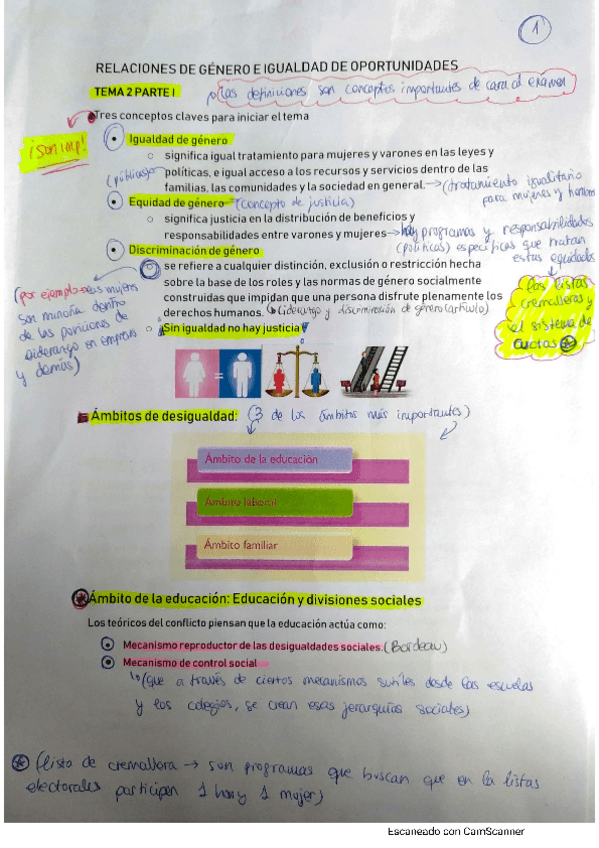 1
RELACIONES DE GÉNERO E IGUALDAD DE OPORTUNIDADES
TEMA 2 PARTE I
las definiciones son conceptos importantes de cara al examen
Tres conceptos claves para iniciar el tema
¡Son imp!
Igualdad de género
significa igual tratamiento para mujeres y varones en las leyes y
(públicas)
políticas, e igual acceso a los recursos y servicios dentro de las
familias, las comunidades y la sociedad en general.
(tratamiento igualitario
para mujeres y hombres
Equidad de género
(concepto de justicia)
significa justicia en la distribución de beneficios y
responsabilidades entre varones y mujeres
hay programas y responsabilidades
(políticas) específicas que tratan
estas equidades
Discriminación de género
se refiere a cualquier distinción, exclusión o restricción hecha
sobre la base de los roles y las normas de género socialmente
construidas que impidan que una persona disfrute plenamente los
derechos humanos.
Liderazgo y discriminación de género (artículo)
(por ejemplo las mujeres
son minoría dentro
de las posiciones de
liderazgo en empresas
y demás)
las listas
cremalleras y
el sistema de
cuotas
Sin igualdad no hay justicia
=
Ámbitos de desigualdad:
(3 de los ámbitos más importantes)
Ámbito de la educación
Ámbito laboral
Ámbito familiar
Ámbito de la educación: Educación y divisiones sociales
Los teóricos del conflicto piensan que la educación actúa como:
Mecanismo reproductor de las desigualdades sociales.
(Bordeau)
Mecanismo de control social
(que a través de ciertos mecanismos sutiles desde las escuelas
y los colegios, se crean esas jerarquías sociales)
(lista de cremallera → son programas que buscan que en la listas
electorales participen 1 hom y 1 mujer)
Escaneado con CamScanner